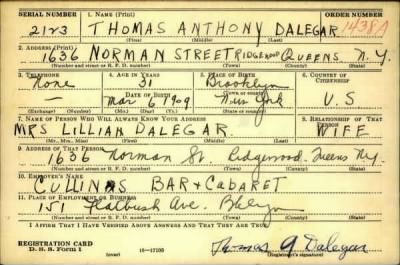 SERIAL NUMBER 1. NAME (Print) ORDER NUMBER
2123 THOMAS ANTHONY DALEGAR 1438A
(First) (Middle) (Last)
2. ADDRESS (Print)
1636 NORMAN STREET RIDGEWOOD QUEENS N.Y.
(Number and street or R. F. D. number) (Town) (County) (State)
3. TELEPHONE 4. AGE IN YEARS 5. PLACE OF BIRTH 6. COUNTRY OF CITIZENSHIP
None 31 Brooklyn
DATE OF BIRTH (Town or county)
— Mar 6 1909 New York U.S
(Exchange) (Number) (Mo.) (Day) (Yr.) (State or country)
7. NAME OF PERSON WHO WILL ALWAYS KNOW YOUR ADDRESS 8. RELATIONSHIP OF THAT PERSON
MRS LILLIAN DALEGAR WIFE
(Mr., Mrs., Miss) (First) (Middle) (Last)
9. ADDRESS OF THAT PERSON
1636 Norman St. Ridgewood Queens N.Y.
(Number and street or R. F. D. number) (Town) (County) (State)
10. EMPLOYER'S NAME
CULLINAS BAR & CABARET
11. PLACE OF EMPLOYMENT OR BUSINESS
151 Flatbush Ave. Bklyn
(Number and street or R. F. D. number) (Town) (County) (State)
I AFFIRM THAT I HAVE VERIFIED ABOVE ANSWERS AND THAT THEY ARE TRUE.
REGISTRATION CARD
D. S. S. Form 1 (over) 16—17105 Thomas A Dalegar
(Registrant's signature)